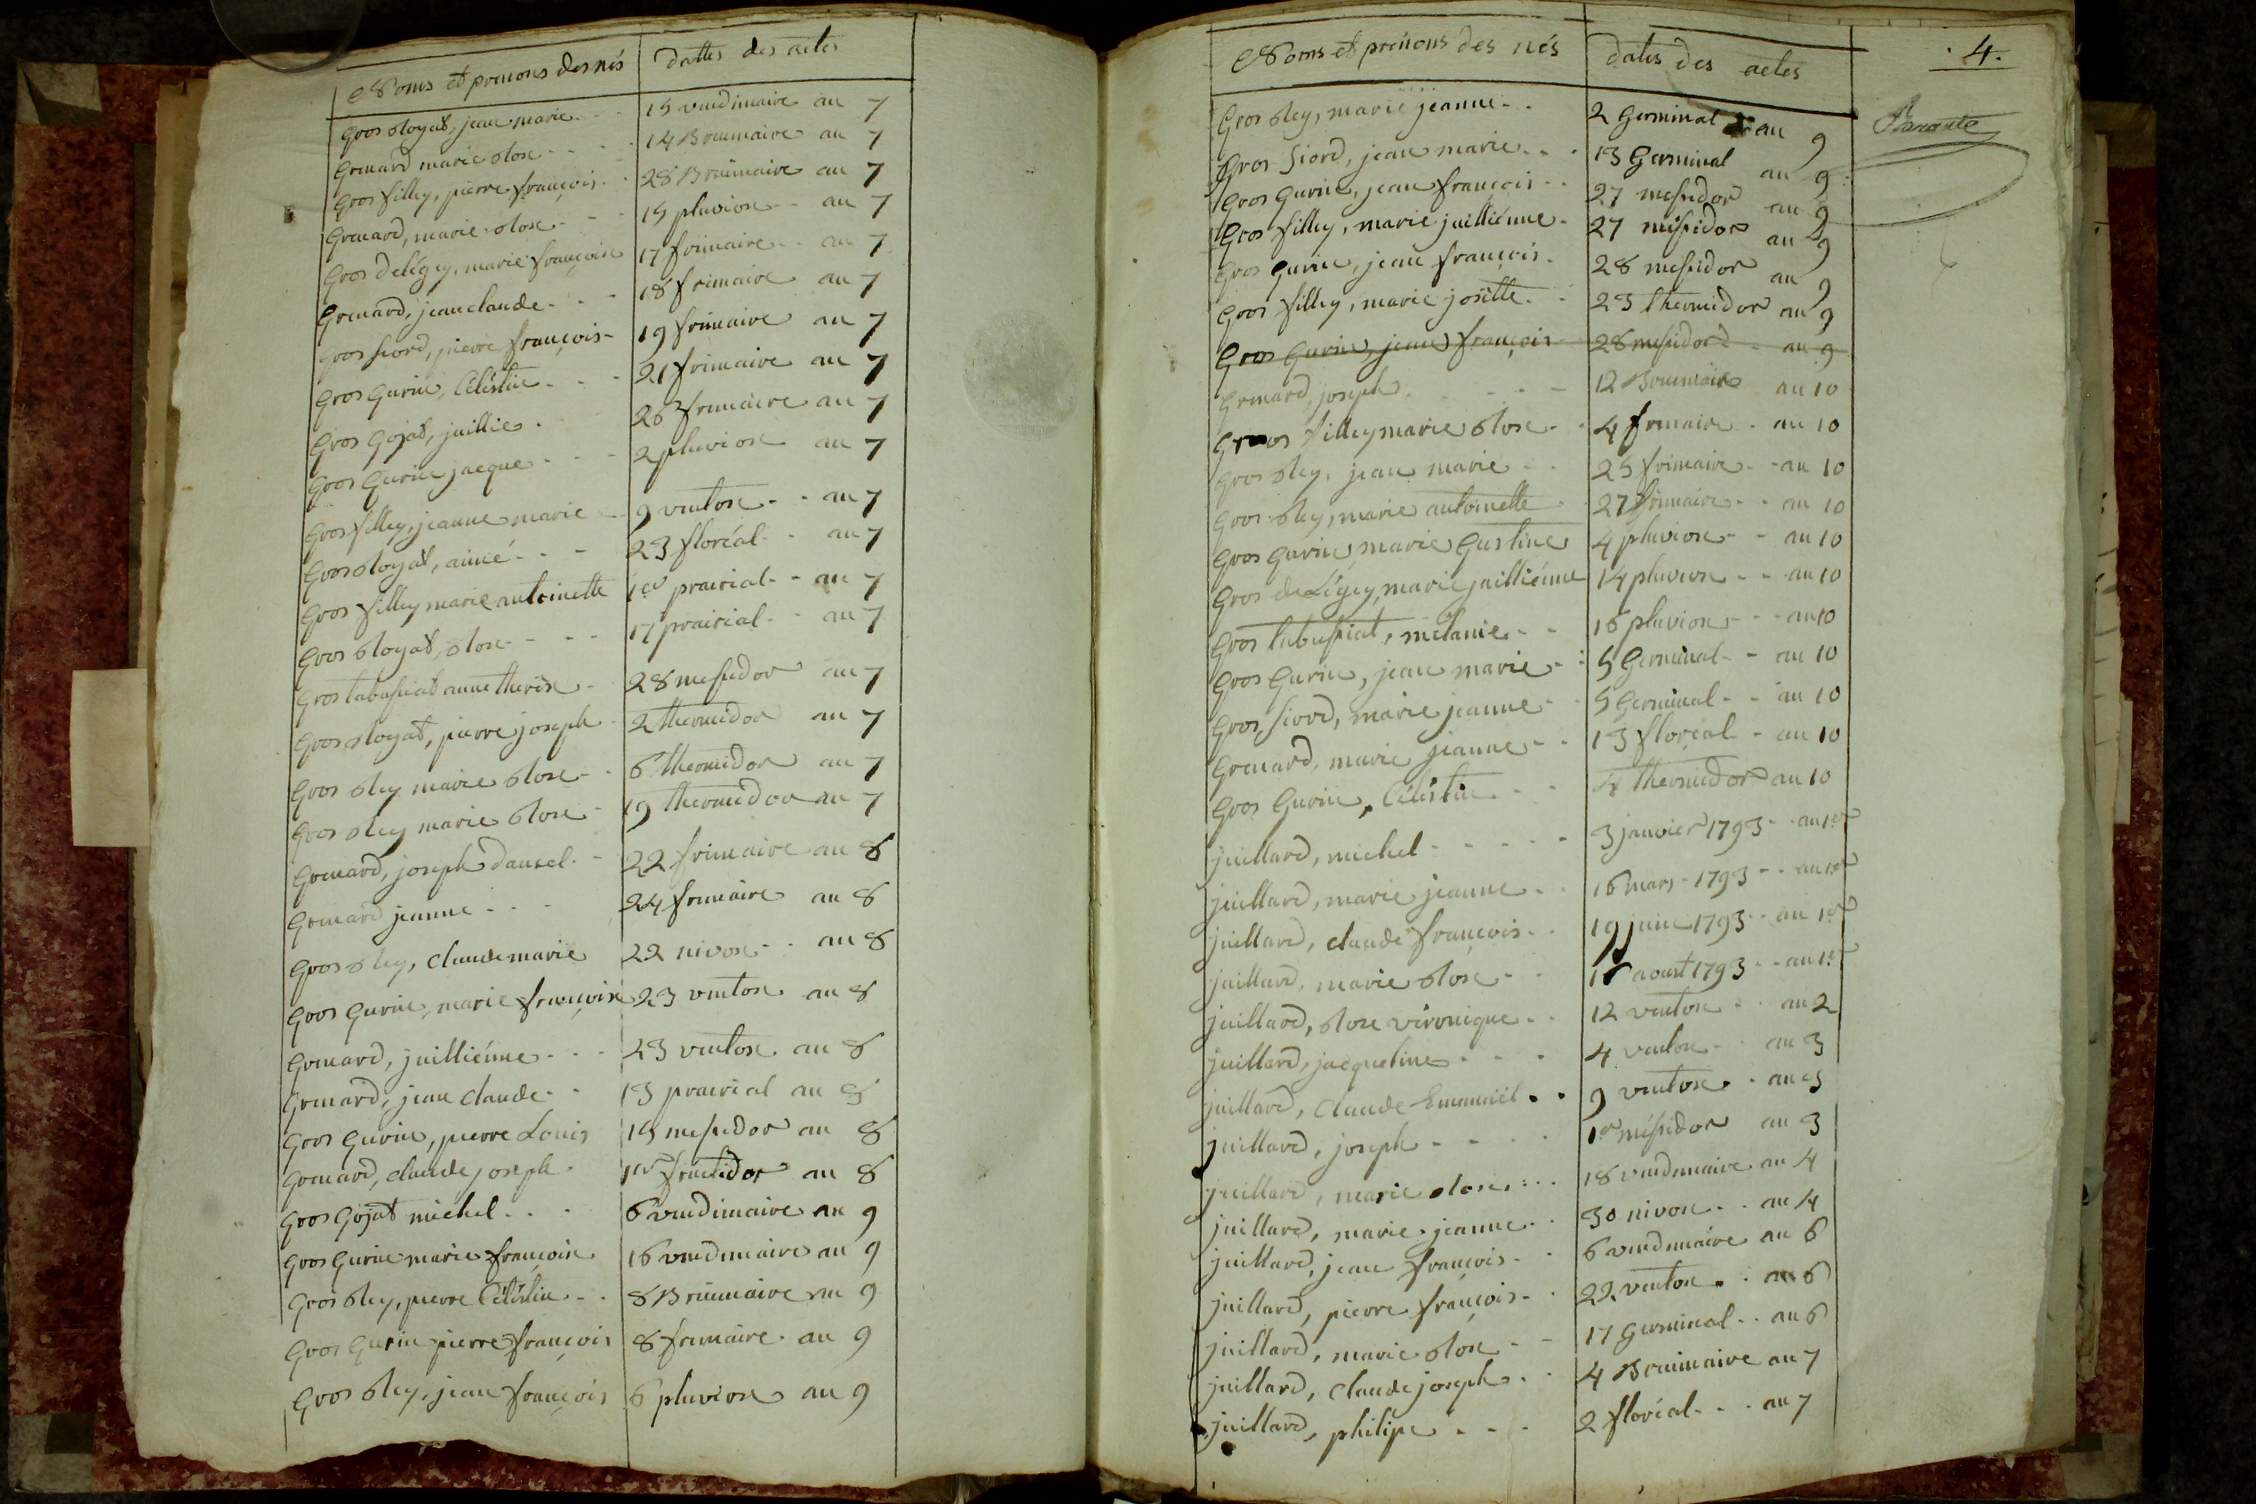 Noms et prenoms des nés | Dattes des actes
Gros Royat, jean marie - - - 15 vendimaire an 7
Grenard marie Rose - - - 14 Brumaire an 7
Gros filley, pierre françois - - 28 Brumaire an 7
Grenard, marie Rose - - - 15 pluviose - - an 7
Gros delégey, marie françoise 17 frimaire - - an 7
Grenard, jean claude - - - 18 frimaire an 7
Gros fiord, pierre françois - 19 frimaire an 7
Gros Gurin, Céléstin - - - 21 frimaire an 7
Gros Gojat, juillie - 26 frimaire an 7
Gros Gurin jacque - - - 2 pluviose an 7
Gros filley, jeanne marie - 9 ventose - - an 7
Gros Royat, aimé - - - 23 floréal - - an 7
Gros filley marie antoinette 1er prairial - - an 7
Gros Royat, Rose - - - 17 prairial - - an 7
Gros tabussiat anne therese - 28 messidor an 7
Gros Royat, pierre joseph - 2 thermidor an 7
Gros Rey marie Rose - - 6 thermidor an 7
Gros Rey marie Rose - 19 thermidor an 7
Grenard, joseph - - 22 frimaire an 8
Grenard jeanne - - - 24 frimaire an 8
Gros Rey, claude marie 22 nivose - - an 8
Gros Gurin, marie françoise 23 ventose an 8
Grenard, juilliénne - - - 23 ventose an 8
Grenard, jean claude - - 13 prairial an 8
Gros Gurin, pierre Louis 15 messidor an 8
Grenard, claude joseph 1er fructidor an 8
Gros Gojat michel - - - 6 vendimaire an 9
Gros Gurin marie françoise 16 vendimaire an 9
Gros Rey, pierre Céléstin - - 8 Brumaire an 9
Gros Gurin pierre françois 8 frimaire - an 9
Gros Rey, jean françois 6 pluviose an 9
Noms et prénoms des nés | dates des actes
4.
Gros Rey, marie jeanne - - 2 Germinal an 9
Barante
Gros fiord, jean marie - - - 13 Germinal an 9
Gros Gurin, jean françois - - 27 messidor an 9
Gros filley, marie juilliénne - 27 messidor an 9
Gros Gurin, jean françois - 28 messidor an 9
Gros filley, marie josette - - 23 thermidor an 9
Gros Gurin, jean françois - 28 messidor - an 9
Grenard, joseph - - - - 12 Brumaire an 10
Gros filley marie Rose - - 4 frimaire - an 10
Gros Rey, jean marie - - 25 frimaire - - an 10
Gros Rey, marie antoinette - 27 frimaire - - an 10
Gros Gurin, marie Gustine 4 pluviose - - an 10
Gros de Légey, marie juilliénne 14 pluviose - - an 10
Gros tabussiat, mélanie - - 16 pluviose - - an 10
Gros Gurin, jean marie - - 5 Germinal - - an 10
Gros fiord, marie jeanne - - 5 Germinal - - an 10
Grenard, marie jeanne - - 13 floréal - an 10
Gros Gurin, Céléstin - - 4 thermidor an 10
juillard, michel - - - - - 3 janvier 1793 - - an 1er
juillard, marie jeanne - - 16 mars - 1793 - - an 1er
juillard, claude françois - - 19 juin 1793 - - an 1er
juillard, marie Rose - - aoust 1793 - - an 1er
juillard, Rose véronique - - 12 ventose - - an 2
juillard, jacqueline - - - 4 ventose - - an 3
juillard, claude Emanuel - - 9 ventose - an 3
juillard, joseph - - - - 1er messidor an 3
juillard, marie Rose - - - 18 vendimaire an 4
juillard, marie jeanne - - 30 nivose - - an 4
juillard, jean françois - - 6 vendimaire an 6
juillard, pierre françois - - 22 ventose - - an 6
juillard, marie Rose - - 17 Germinal - - an 6
juillard, claude joseph - - 4 Brumaire an 7
juillard, philipe - - - 2 floréal - - - an 7